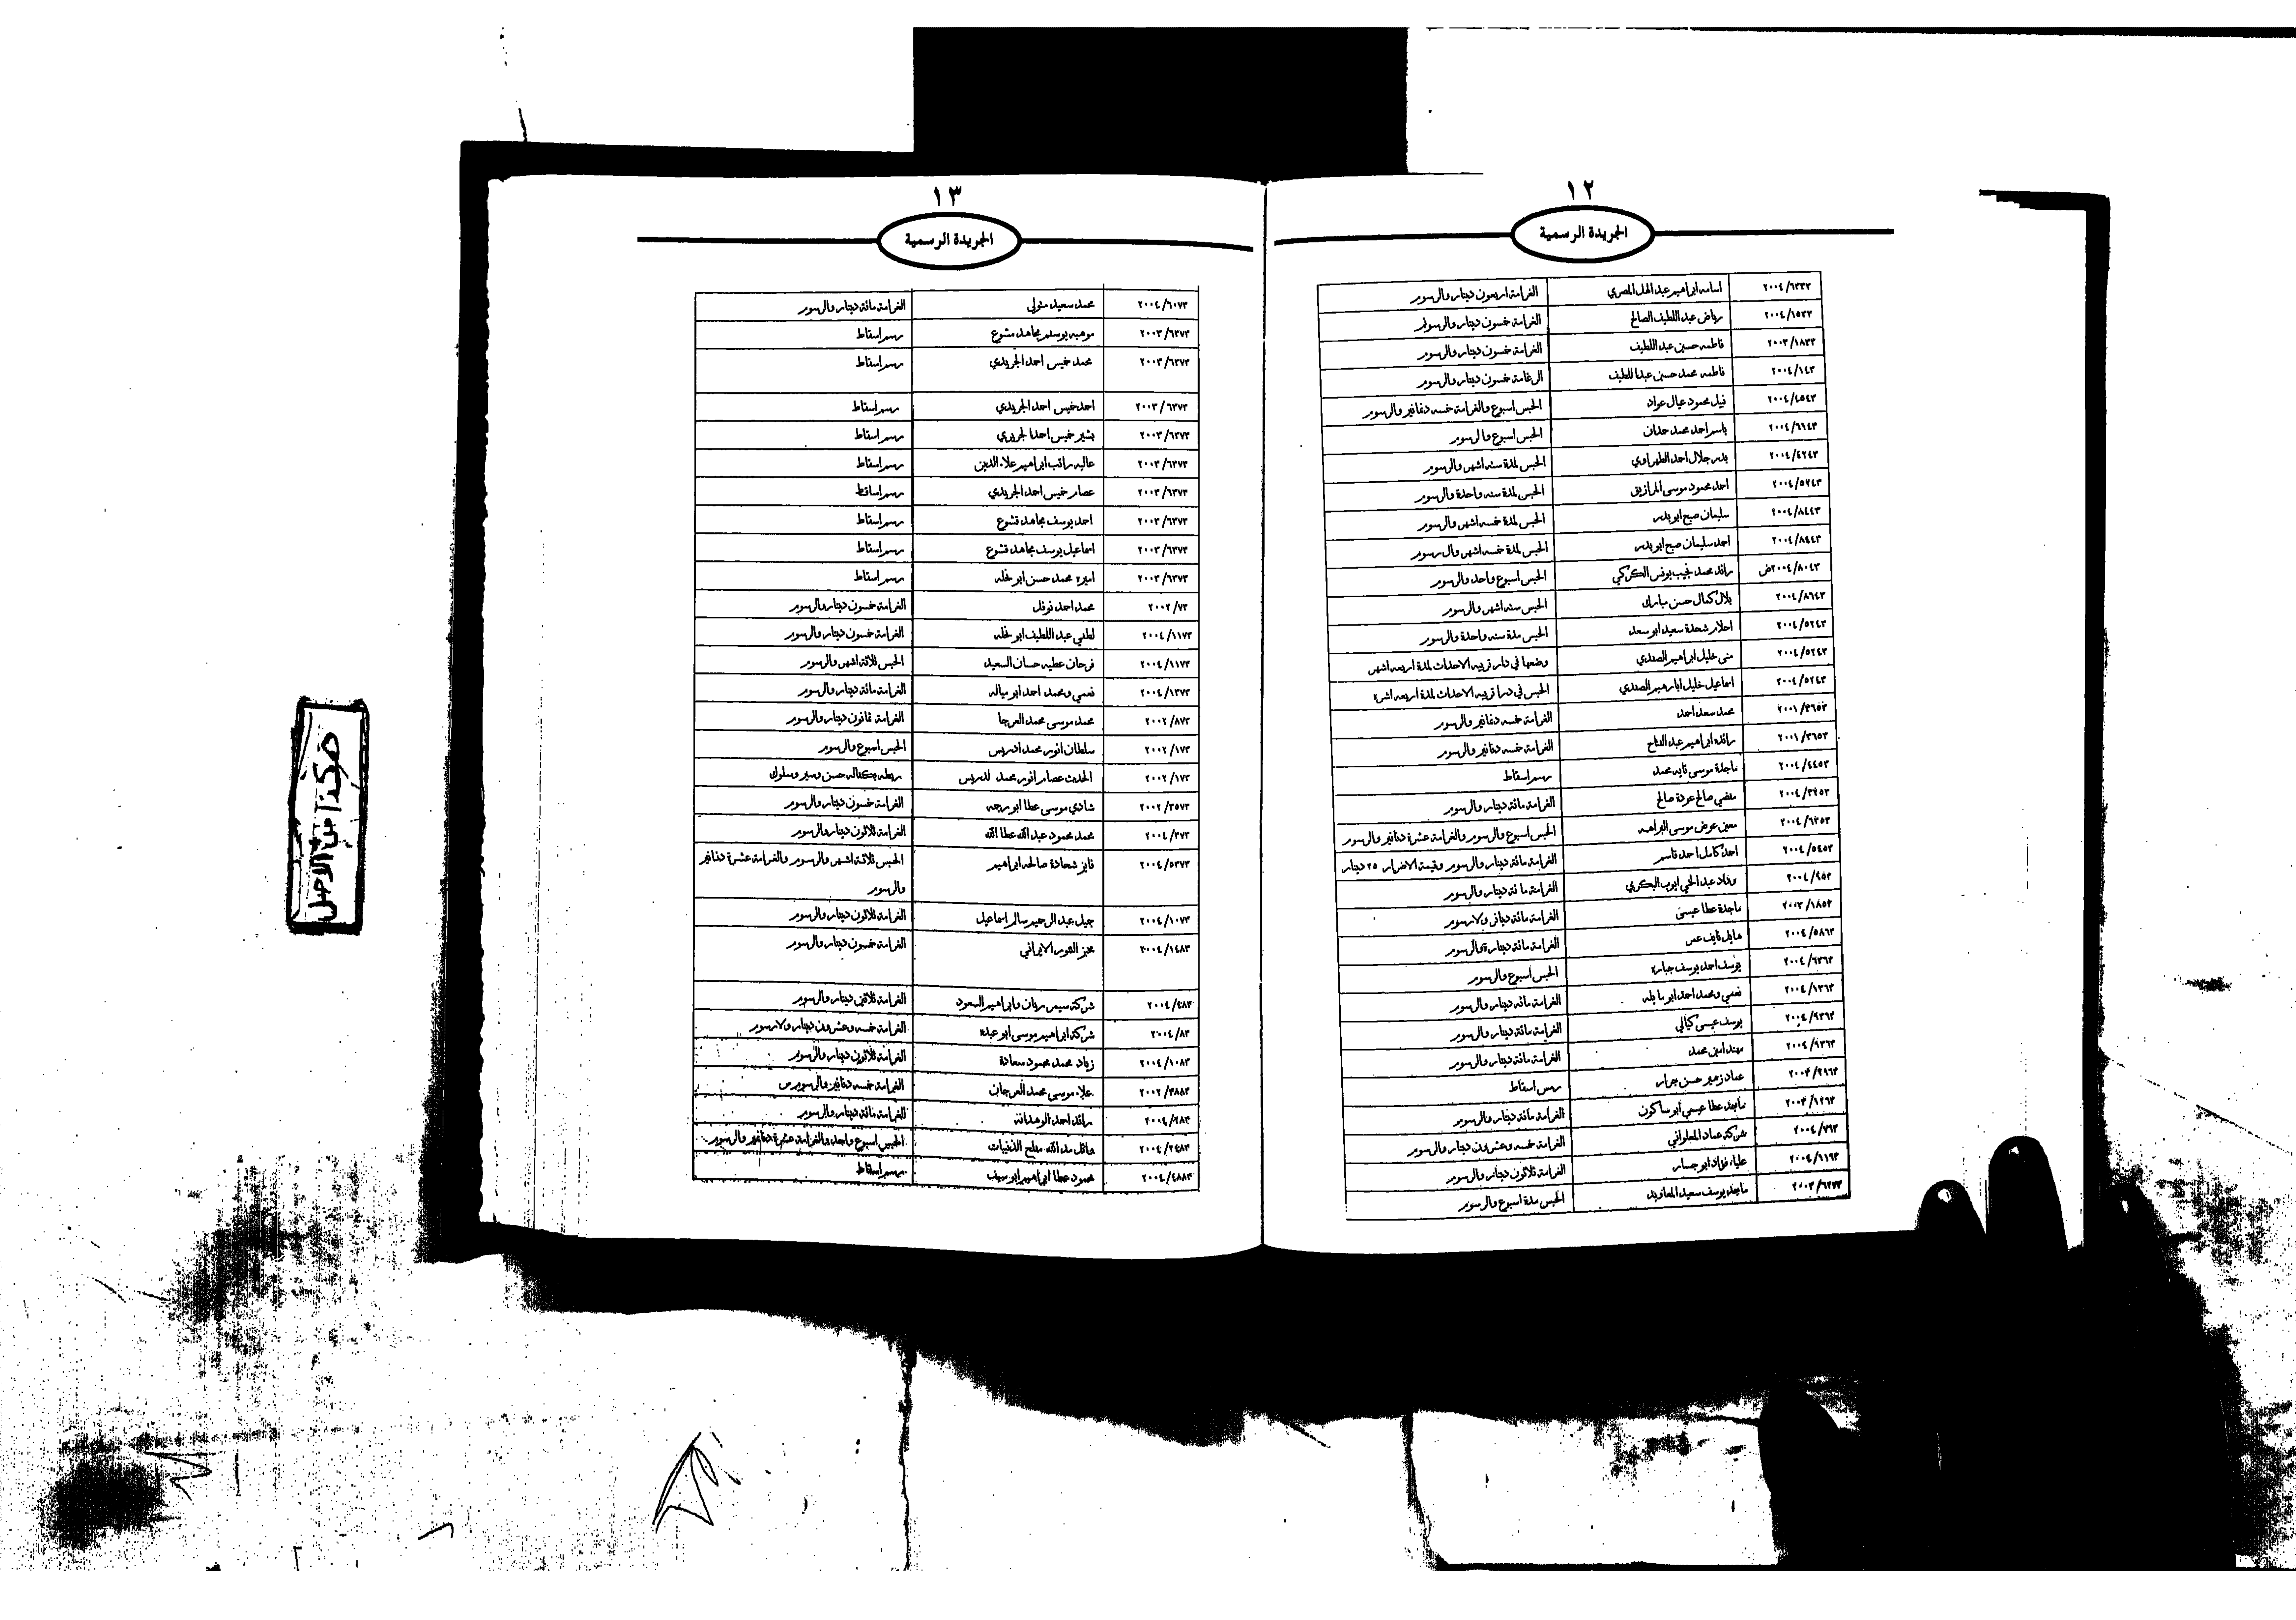 ١٢
الجريدة الرسمية
٢٠٠٤/٦٣٣٣ اسامه ابراهيم عبد الهل المصري الغرامة اربعون دينار والرسوم
٢٠٠٤/١٥٣٣ رياض عبد اللطيف الصالح الغرامة خمسون دينار والرسوم
٢٠٠٣/١٨٣٣ فاطمه حسين عبد اللطيف الغرامة خمسون دينار والرسوم
٢٠٠٤/١٤٣ فاطمه محمد حسين عبدا للطيف الرغامة خمسون دينار والرسوم
٢٠٠٤/٤٥٤٣ نبيل محمود عيال عواد الحبس اسبوع والغرامة خمسه دنانير والرسوم
٢٠٠٤/٦١٤٣ باسم احمد محمد حمدان الحبس اسبوع والرسوم
٢٠٠٤/٤٢٤٣ بدر جلال احمد الطهراوي الحبس لمدة سته اشهر والرسوم
٢٠٠٤/٥٢٤٣ احمد محمود موسى المرازيق الحبس لمدة سنه واحدة والرسوم
٢٠٠٤/٨٤٤٣ سليمان صبح ابو بدر الحبس لمدة خمسه اشهر والرسوم
٢٠٠٤/٨٤٤٣ احمد سليمان صبح ابو بدر الحبس لمدة خمسه اشهر وال رسوم
٢٠٠٤/٨٠٤٣ض رائد محمد نجيب يونس الكركي الحبس اسبوع واحد والرسوم
٢٠٠٤/٨٦٤٣ بلال كمال حسن مبارك الحبس سته اشهر والرسوم
٢٠٠٤/٥٢٤٣ احلام شحدة سعيد ابو سعد الحبس مدة سنه واحدة والرسوم
٢٠٠٤/٥٢٤٣ منى خليل ابراهيم الصندي وضعها في دار تربيه الاحداث لمدة اربعه اشهر
٢٠٠٤/٥٢٤٣ اسماعيل خليل ابارهيم الصندي الحبس في درا تربيه الاحداث لمدة اربعه اشرة
٢٠٠١/٣٦٥٣ محمد سعد احمد الغرامة خمسه دنانير والرسوم
٢٠٠١/٣٦٥٣ رائد ابراهيم عبد الفتاح الغرامة خمسه دنانير والرسوم
٢٠٠٤/٤٤٥٣ ماجدة موسى نايه محمد رسم اسقاط
٢٠٠٤/٣٤٥٣ مضي صالح عودة صالح الغرامة مائة دينار والرسوم
٢٠٠٤/٦٢٥٣ معين عوض موسى البراهمه الحبس اسبوع والرسوم والغرامة عشرة دنانير والرسوم
٢٠٠٤/٥٤٥٣ احمد كامل احمد قاسم الغرامة مائة دينار والرسوم وقيمة الاضرار ٢٥ دينار
٢٠٠٤/٤٥٣ وداد عبد الحي ايوب البكري الغرامة مائة دينار والرسوم
٢٠٠٣/١٨٥٣ ماجدة عطا عيسى الغرامة مائة ديناى ولارسوم
٢٠٠٤/٥٨٦٣ هايل نايف عمر الغرامة مائة دينارة والرسوم
٢٠٠٤/٦٣٦٣ يوسف احمد يوسف جباره الحبس اسبوع والرسوم
٢٠٠٤/١٣٦٣ نعمي ومحمد احمد ابو مايله الغرامة مائه دينار والرسوم
٢٠٠٤/٩٣٦٣ يوسف عيسى كيالي الغرامة مائة دينار والرسوم
٢٠٠٤/٩٣٦٣ مهند امين محمد الغرامة مائة دينار والرسوم
٢٠٠٣/٢٩٦٣ عماد زهير حسن جرار رسم اسقاط
٢٠٠٣/١٢٦٣ ماجد عطا عيسى ابو ساكون الغرامة مائة دينار والرسوم
٢٠٠٤/٧٦٣ شركة عماد المعلواني الغرامة خمسه وعشرون دينار والرسوم
٢٠٠٤/١١٦٣ علياء فؤاد ابو جسار الغرامة ثلاثون دينار والرسوم
٢٠٠٣/٦٢٧٣ ماجد يوسف سعيد المعاويد الحبس مدة اسبوع والرسوم
١٣
الجريدة الرسمية
٢٠٠٤/٦٠٧٣ محمد سعيد متولي الغرامة مائة دينار والرسوم
٢٠٠٣/٦٣٧٣ موهبه يوسف مجاهد مشوع رسم اسقاط
٢٠٠٣/٦٣٧٣ محمد خميس احمد الجريدي رسم اسقاط
٢٠٠٣/٦٣٧٣ احمد خميس احمد الجريدي رسم اسقاط
٢٠٠٣/٦٣٧٣ بشير خميس احمدا لجريري رسم اسقاط
٢٠٠٣/٦٣٧٣ عاليه راتب ابراهيم علاء الدين رسم اسقاط
٢٠٠٣/٦٣٧٣ عصام خميس احمد الجريدي رسم اساقط
٢٠٠٣/٦٣٧٣ احمد يوسف مجاهد قشوع رسم اسقاط
٢٠٠٣/٦٣٧٣ اسماعيل يوسف مجاهد قشوع رسم اسقاط
٢٠٠٣/٦٣٧٣ اميره محمد حسن ابو نخله رسم اسقاط
٢٠٠٢/٧٣ محمد احمد نوفل الغرامة خمسون دينار والرسوم
٢٠٠٤/١١٧٣ لطفي عبد اللطيف ابو نخله الغرامة خمسون دينار والرسوم
٢٠٠٤/١١٧٣ فرحان عطيه حسان السعيد الحبس ثلاثة اشهر والرسوم
٢٠٠٤/١٣٧٣ نعمي ومحمد احمد ابو مياله الغرامة مائة دينار والرسوم
٢٠٠٢/٨٧٣ محمد موسى محمد العرجا الغرامة ثمانون دينار والرسوم
٢٠٠٢/١٧٣ سلطان انور محمد ادريس الحبس اسبوع والرسوم
٢٠٠٢/١٧٣ الحدث عصام انور محمد لدريس ربطه بكفاله حسن وسير وسلوك
٢٠٠٢/٣٥٧٣ شادي موسى عطا ابو رجه الغرامة خمسون دينار والرسوم
٢٠٠٤/٣٧٣ محمد محمود عبد الله عطا الله الغرامة ثلاثون دينار والرسوم
٢٠٠٤/٥٣٧٣ فايز شحادة صالحه ابراهيم الحبس ثلاثة اشهر والرسوم والغرامة عشرة دنانير
والرسوم
٢٠٠٤/١٠٧٣ جميل عبد الرحيم سالم اسماعيل الغرامة ثلاثون دينار والرسوم
٢٠٠٤/١٤٨٣ مخبز التنور الايراني الغرامة خمسون دينار والرسوم
٢٠٠٤/٤٨٣ شركة سيمر ريان وابراهيم السعود الغرامة ثلاثين دينار والرسوم
٢٠٠٤/٨٣ شركة ابراهيم موسى ابو عبده الغرامة خمسه وعشرون دينار ولارسوم
٢٠٠٤/١٠٨٣ زياد محمد محمود سعادة الغرامة ثلاثون دينار والرسوم
٢٠٠٢/٣٨٨٣ علاء موسى محمد العرجان الغرامة خمسه دنانير والرسوم س
٢٠٠٤/٢٨٣ رائد احمد الوهدانه الغرامة مائة دينار والرسوم
٢٠٠٤/٢٤٨٣ هائل مد الله مفلح الذنيبات الحبس اسبوع واحد والغرامة عشرة دنانير والرسوم
٢٠٠٤/٤٨٨٣ محمود عطا ابراهيم ابو سيف رسم اسقاط
هكذا من الاصل